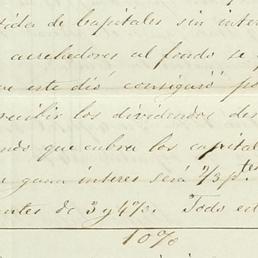 ida de Capitales sin inter
acrehedores al fondo se p
este dió consiguió po
recibir los dividendos de
ndo que cubra los capital
gana interes será 2/3 p.
ntes de 3 y 4%. Todo est
10%